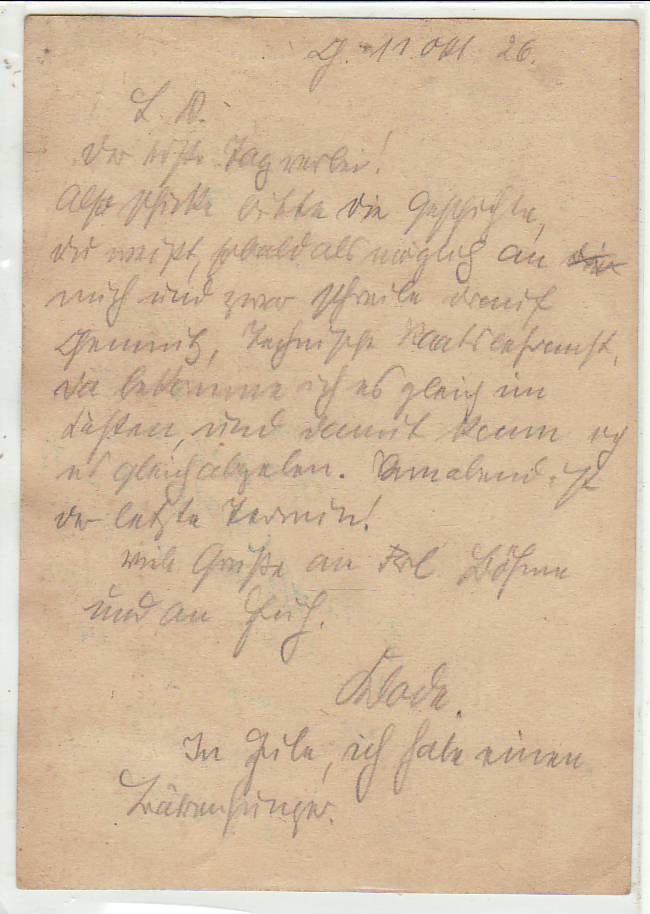 Ch. 11. Okt 26.
L. K.
der erste Tag vorbei!
Also schicke bitte die Geschichte,
du weißt, sobald als möglich an die
mich und zwar schreibe drauf
Chemnitz, Technische Staatslehranst.
da bekomme ich es gleich im
Kasten, und damit kann ich
es gleich abgeben. Sonnabend ist
der letzte Termin!
viele Grüße an Frl Böhme
und an Euch.
In Eile, ich habe einen
Bärenhunger.